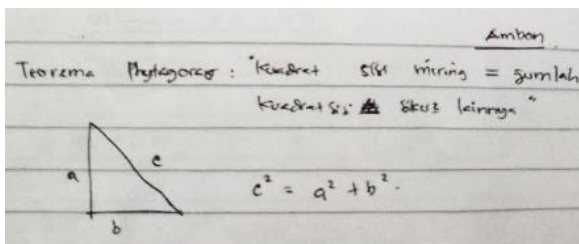 Ambon
Teorema Phytagoras : "Kuadrat sisi miring = jumlah
kuadrat sisi siku2 lainnya"
a
c
c² = a² + b².
b